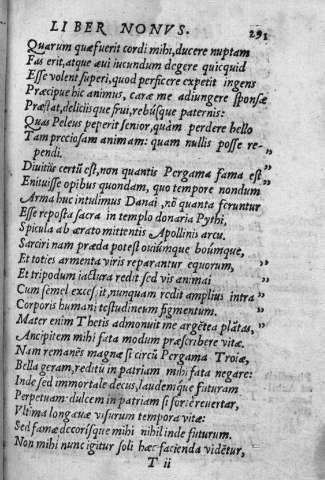 LIBER NONVS. 291
Quarum quæsuerit cordi mihi, ducere nuptam
Fas erit, atque æui iucundum degere quicquid
Esse volent superi, quod perficere expetit ingens
Præcipue hic animus, caræ me adiungere sponsæ
Præstat, deliciisque frui, rebúsque paternis:
Quas Peleus peperit senior, quàm perdere bello
Tam preciosam animam: quam nullis posse re-
pendi. „
Diuitiis certũ est, non quantis Pergama fama est „
Enituisse opibus quondam, quo tempore nondum „
Arma huc intulimus Danai, nõ quanta feruntur „
Esse reposta sacra in templo donaria Pythi, „
Spicula ab ærato mittentis Apollinis arcu.
Sarciri nam præda potest ouiúmque boúmque, „
Et toties armenta viris reparantur equorum, „
Et tripodum iactura redit sed vis animai „
Cum semel excessit, nunquam redit amplius intra „
Corporis humani testudineum figmentum. „
Mater enim Thetis admonuit me argẽtea plãtas, „
Ancipitem mihi fata modum præscribere vitæ.
Nam remanẽs magnæ si circũ Pergama Troiæ,
Bella geram, reditũ in patriam mihi fata negare:
Inde sed immortale decus, laudemque futuram
Perpetuam: dulcem in patriam si fortè reuertar,
Vltima longæuæ visurum tempora vitæ:
Sed famæ decorísque mihi nihil inde futurum.
Non mihi nunc igitur soli hæc facienda vidẽtur,
T ii